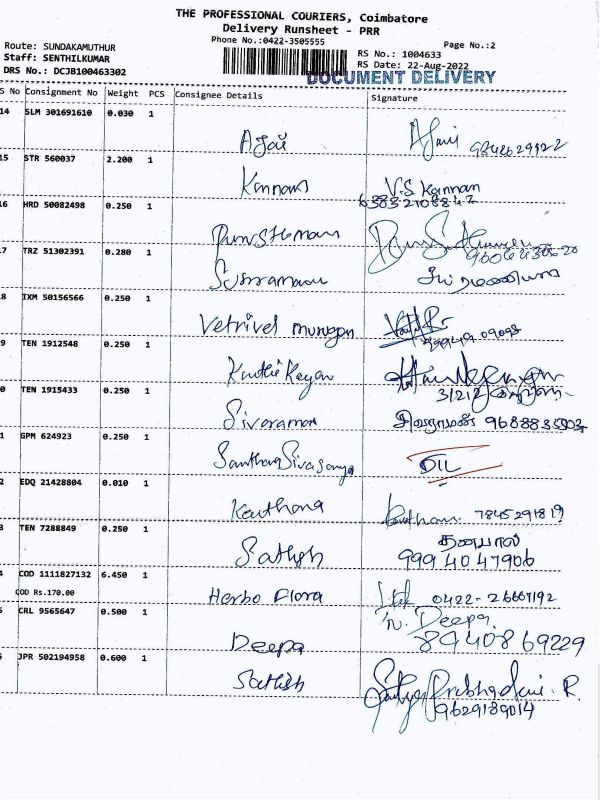 THE PROFESSIONAL COURIERS, Coimbatore
Delivery Runsheet - PRR
Phone No.:0422-3505555
Page No.:2
Route: SUNDAKAMUTHUR
Staff: SENTHILKUMAR
DRS No.: DCJB100463302
RS No.: 1004633
RS Date: 22-Aug-2022
DOCUMENT DELIVERY
S No Consignment No Weight PCS Consignee Details Signature
14 SLM 301691610 0.030 1
Ajai
15 STR 560037 2.200 1
Kannan V.S Kannan
63832108842
16 HRD 50082498 0.250 1
7 TRZ 51302391 0.280 1
8 IXM 50156566 0.250 1
Vetrivel murugan
9 TEN 1912548 0.250 1
Karthi Keyan
0 TEN 1915433 0.250 1
Sivaraman சிவராமன்
1 GPM 624923 0.250 1
2 EDQ 21428804 0.010 1
7845291819
3 TEN 7288849 0.250 1
Sathish தனபால்
999 40 47906
4 COD 1111827132 6.450 1
COD Rs.170.00
Herbo Flora 0422-26667192
5 CRL 9565647 0.500 1
Deepa N. Deepa
8940869229
6 JPR 502194958 0.600 1
Sathish Sathya Prabhadevi. R
9629189014